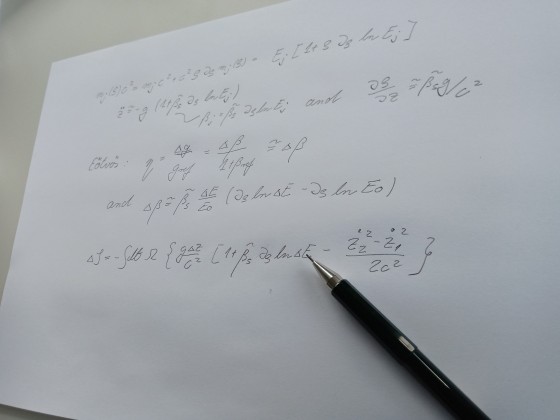 m_j(ϱ)c² = m_j c² + c² ϱ ∂_ϱ m_j(ϱ) = E_j [1 + ϱ ∂_ϱ ln E_j]
z̈ = -g (1 + β̃_S ∂_ϱ ln E_j)
β_j = β̃_S ∂_ϱ ln E_j and ∂ϱ/∂z ≅ β̃_S g/c²
Eötvös: η = Δg/g_ref = Δβ/(1+β_ref) ≅ Δβ
and Δβ ≅ β̃_S ΔE/E₀ (∂_ϱ ln ΔE - ∂_ϱ ln E₀)
= -∫dt Ω { gΔz/c² [1 + β̃_S ∂_ϱ ln ΔE - (ż₂² - ż₁²)/2c² }